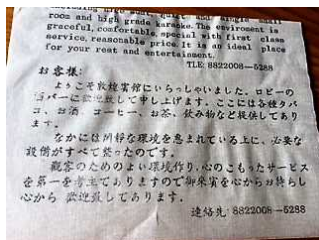 room and high grade karaoke. The enviroment is
graceful, comfortable, special with first class
service, reasonable price. It is an ideal place
for your reat and entertainment.
TLE: 8822008—5288
お客様:
ようこそ敦煌賓館にいらっしゃいました。ロビーの
バーに歓迎致して申し上げます。ここには各種タバ
コ、お酒、コーヒー、お茶、飲み物など提供してあり
ます。
なかには閑静な環境を恵まれている上に、必要な
設備がすべて整ったのです。
観客のためのよい環境作り、心のこもったサービス
を第一を考えてありますので御来賓を心からお待らし
心から 歓迎致してあります。
連絡先: 8822008—5288